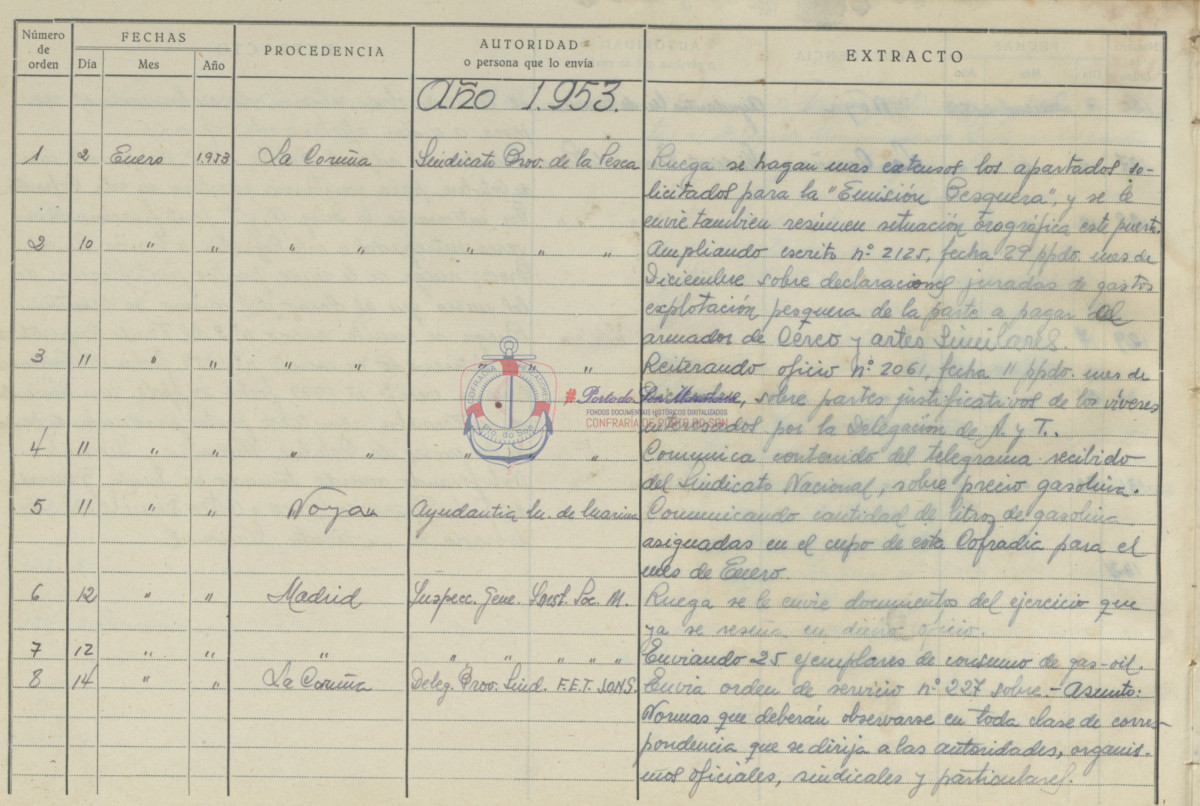 Número de orden FECHAS PROCEDENCIA AUTORIDAD o persona que lo envía EXTRACTO
Día Mes Año
Año 1.953.
1 2 Enero 1.953 La Coruña Sindicato Prov. de la Pesca Ruega se hagan mas extensos los apartados so-
licitados para la "Emisión Pesquera", y se le
envie tambien resúmen situación orográfica este puerto.
2 10 " " " " " " " Ampliando escrito nº 2125, fecha 29 ppdo. mes de
Diciembre sobre declaraciones juradas de gastos
explotación pesquera de la parte a pagar del
armador de Cerco y artes Similares.
3 11 " " " " " " " Reiterando oficio nº 2061, fecha 11 ppdo. mes de
Diciembre, sobre partes justificativos de los víveres
interesados por la Delegación de A. y T..
4 11 " " " " " " " Comunica contenido del telegrama recibido
del Sindicato Nacional, sobre precio gasolina.
5 11 " " Noya Ayudantia M. de Marina Comunicando cantidad de litros de gasolina
asignadas en el cupo de esta Cofradia para el
mes de Enero.
6 12 " " Madrid Inspecc. Gene. Soc. M. Ruega se le envie documentos del ejercicio que
ya se reseña en dicho oficio.
7 12 " " " " " " " " Enviando 25 ejemplares de consumo de gas-oil.
8 14 " " La Coruña Deleg. Prov. Sind. F.E.T. JONS. Envia orden de servicio nº 227 sobre.- Asunto:
Normas que deberán observarse en toda clase de corres-
pondencia que se dirija a las autoridades, organis-
mos oficiales, sindicales y particulares.
COFRADÍA PESCADORES
Pto. do Son
#PortodoSonMariñeiro
FONDOS DOCUMENTAIS HISTÓRICOS DIGITALIZADOS
CONFRARÍA DE PORTO DO SON